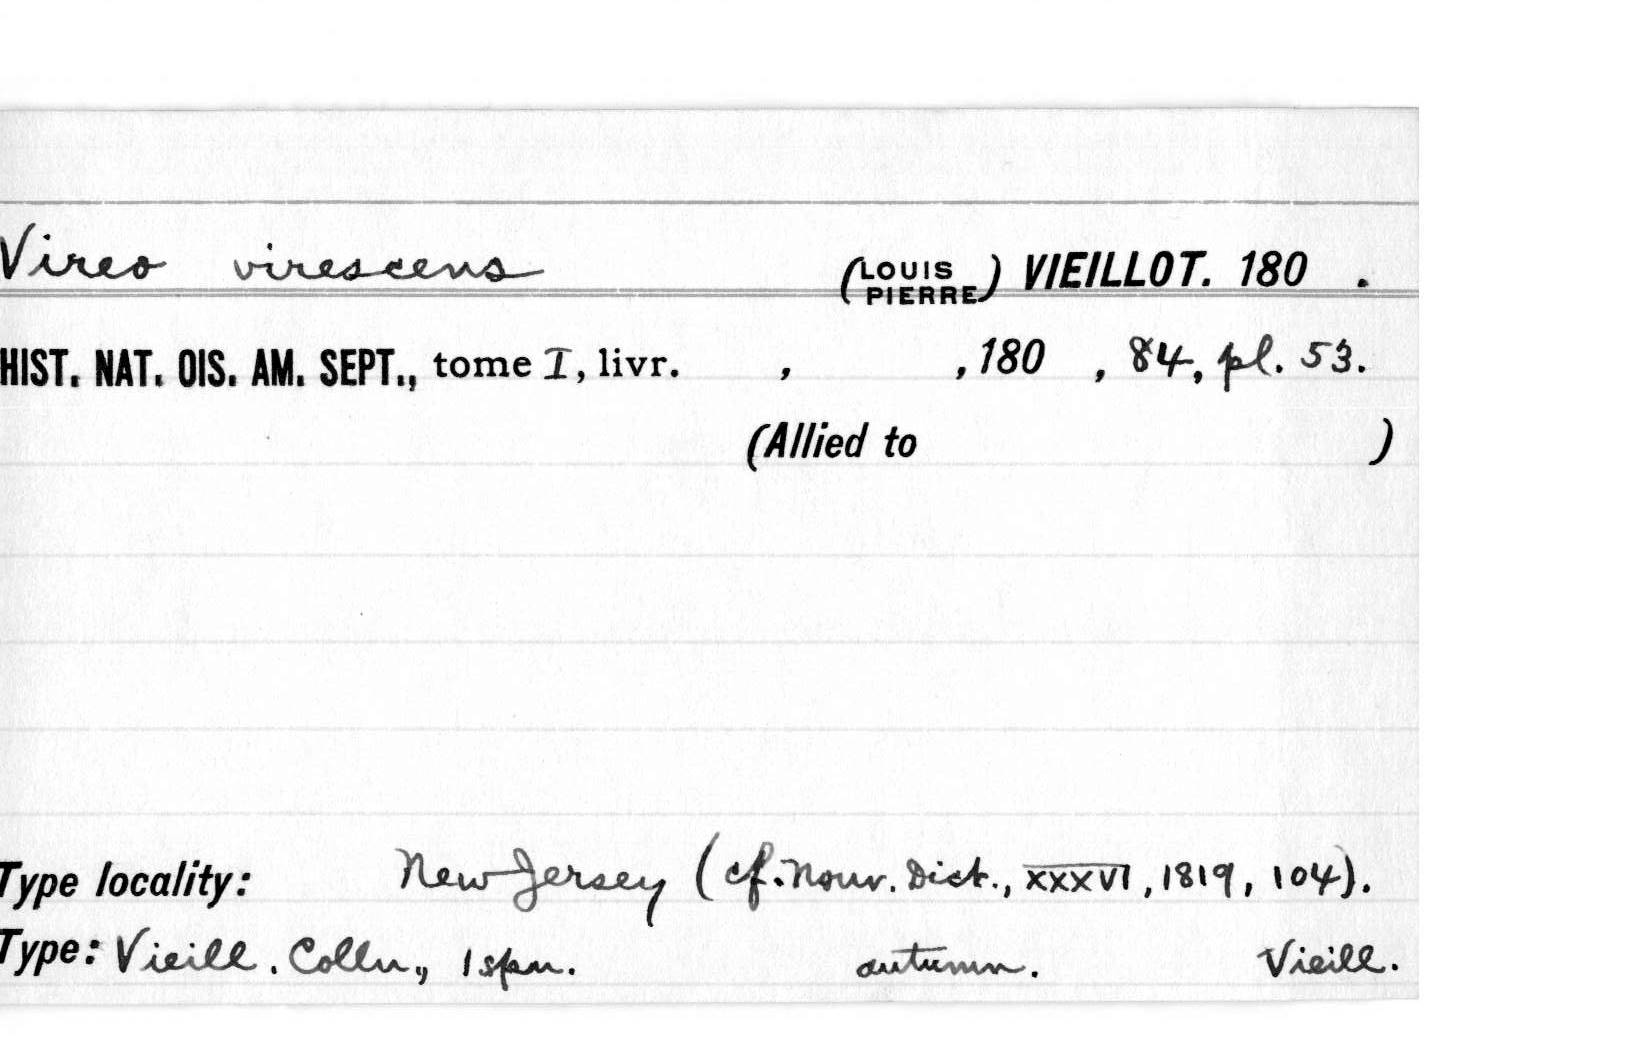 Vireo virescens (LOUIS PIERRE) VIEILLOT. 180 .
HIST. NAT. OIS. AM. SEPT., tome I, livr. , , 180 , 84, pl. 53.
(Allied to )
Type locality: New Jersey (cf. Nouv. Dict., XXXVI, 1819, 104).
Type: Vieill. Colln., 1 spm. autumn. Vieill.